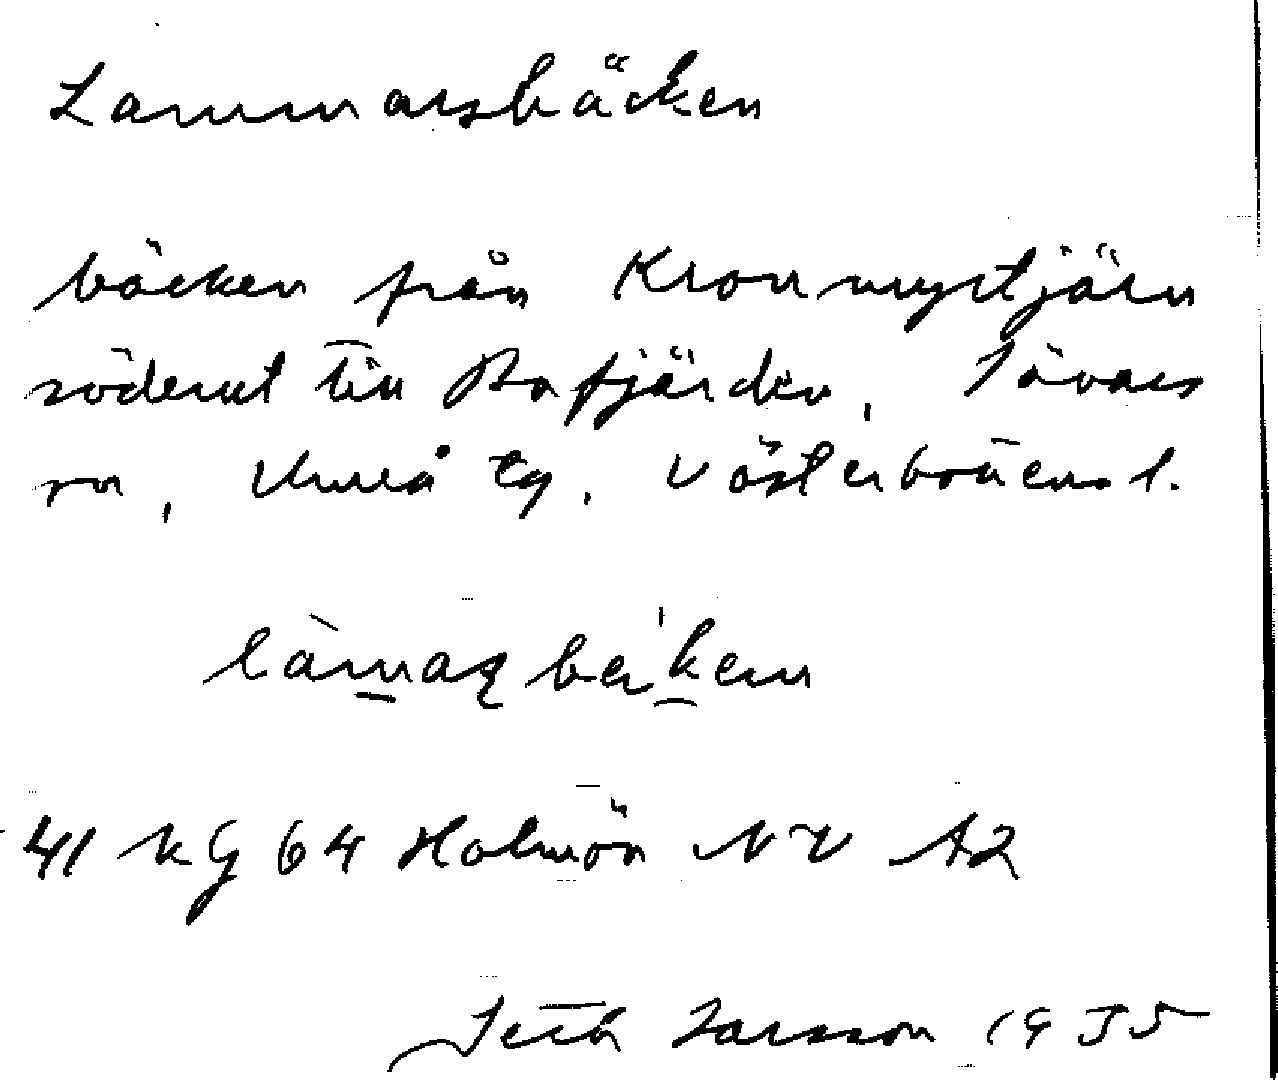 Lammarsbäcken
bäcken från Kronmyrtjärn
söderut till Rafjärden, Sävars
sn, Umeå tg, Västerbottens l.
làmaʂbeˈken
41 KG 64 Holmön NV A2
Seth Larsson 1935